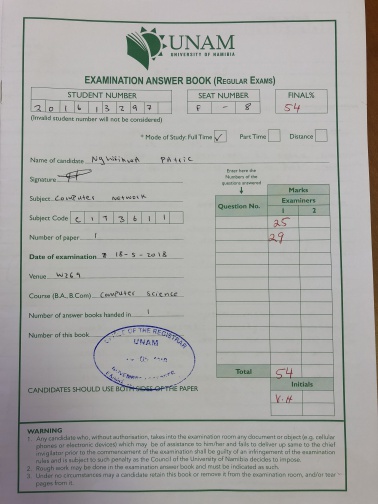 UNAM
UNIVERSITY OF NAMIBIA
EXAMINATION ANSWER BOOK (REGULAR EXAMS)
STUDENT NUMBER SEAT NUMBER FINAL%
2 0 1 6 1 3 2 9 7 F - 8 54
(Invalid student number will not be considered)
* Mode of Study: Full Time ✓ Part Time Distance
Name of candidate
Signature
Subject Computer Network
Subject Code C I T 3 6 1 1
Number of paper 1
Date of examination 18-5-2018
Venue W269
Course (B.A., B.Com) Computer Science
Number of answer books handed in 1
Number of this book
Enter here the
Numbers of the
questions answered
Marks
Question No. Examiners
1 2
25
29
Total 54
Initials
V.H
OFFICE OF THE REGISTRAR
UNAM
CANDIDATES SHOULD USE BOTH SIDES OF THE PAPER
WARNING
1. Any candidate who, without authorisation, takes into the examination room any document or object (e.g. cellular
phones or electronic devices) which may be of assistance to him/her and fails to deliver up same to the chief
invigilator prior to the commencement of the examination shall be guilty of an infringement of the examination
rules and is subject to such penalty as the Council of the University of Namibia decides to impose.
2. Rough work may be done in the examination answer book and must be indicated as such.
3. Under no circumstances may a candidate retain this book or remove it from the examination room, and/or tear
pages from it.